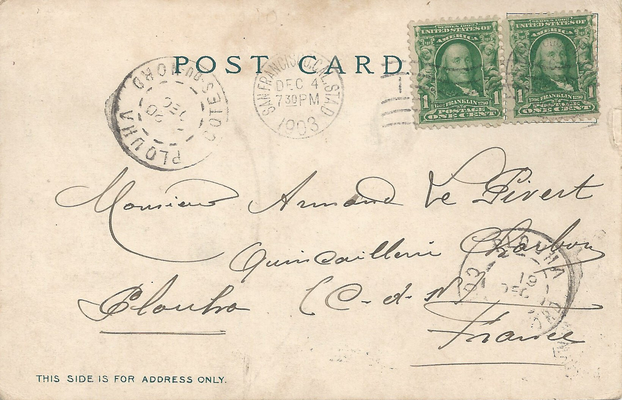 POST CARD
SERIES 1902
UNITED STATES OF
AMERICA
1 FRANKLIN 1
POSTAGE
ONE CENT
SERIES 1902
UNITED STATES OF
AMERICA
1 FRANKLIN 1
POSTAGE
ONE CENT
SAN FRANCISCO, CAL. STA. D
DEC 4
730 PM
1903
PLOUHA
COTES-DU-NORD
DEC
Monsieur Armand Le Pivert
Quincaillerie Charbon
Plouha (C-d-N)
France
PLOUHA
19
DEC
THIS SIDE IS FOR ADDRESS ONLY.